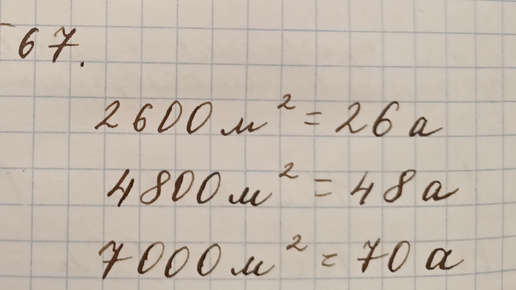 67.
2600 м² = 26 а
4800 м² = 48 а
7000 м² = 70 а